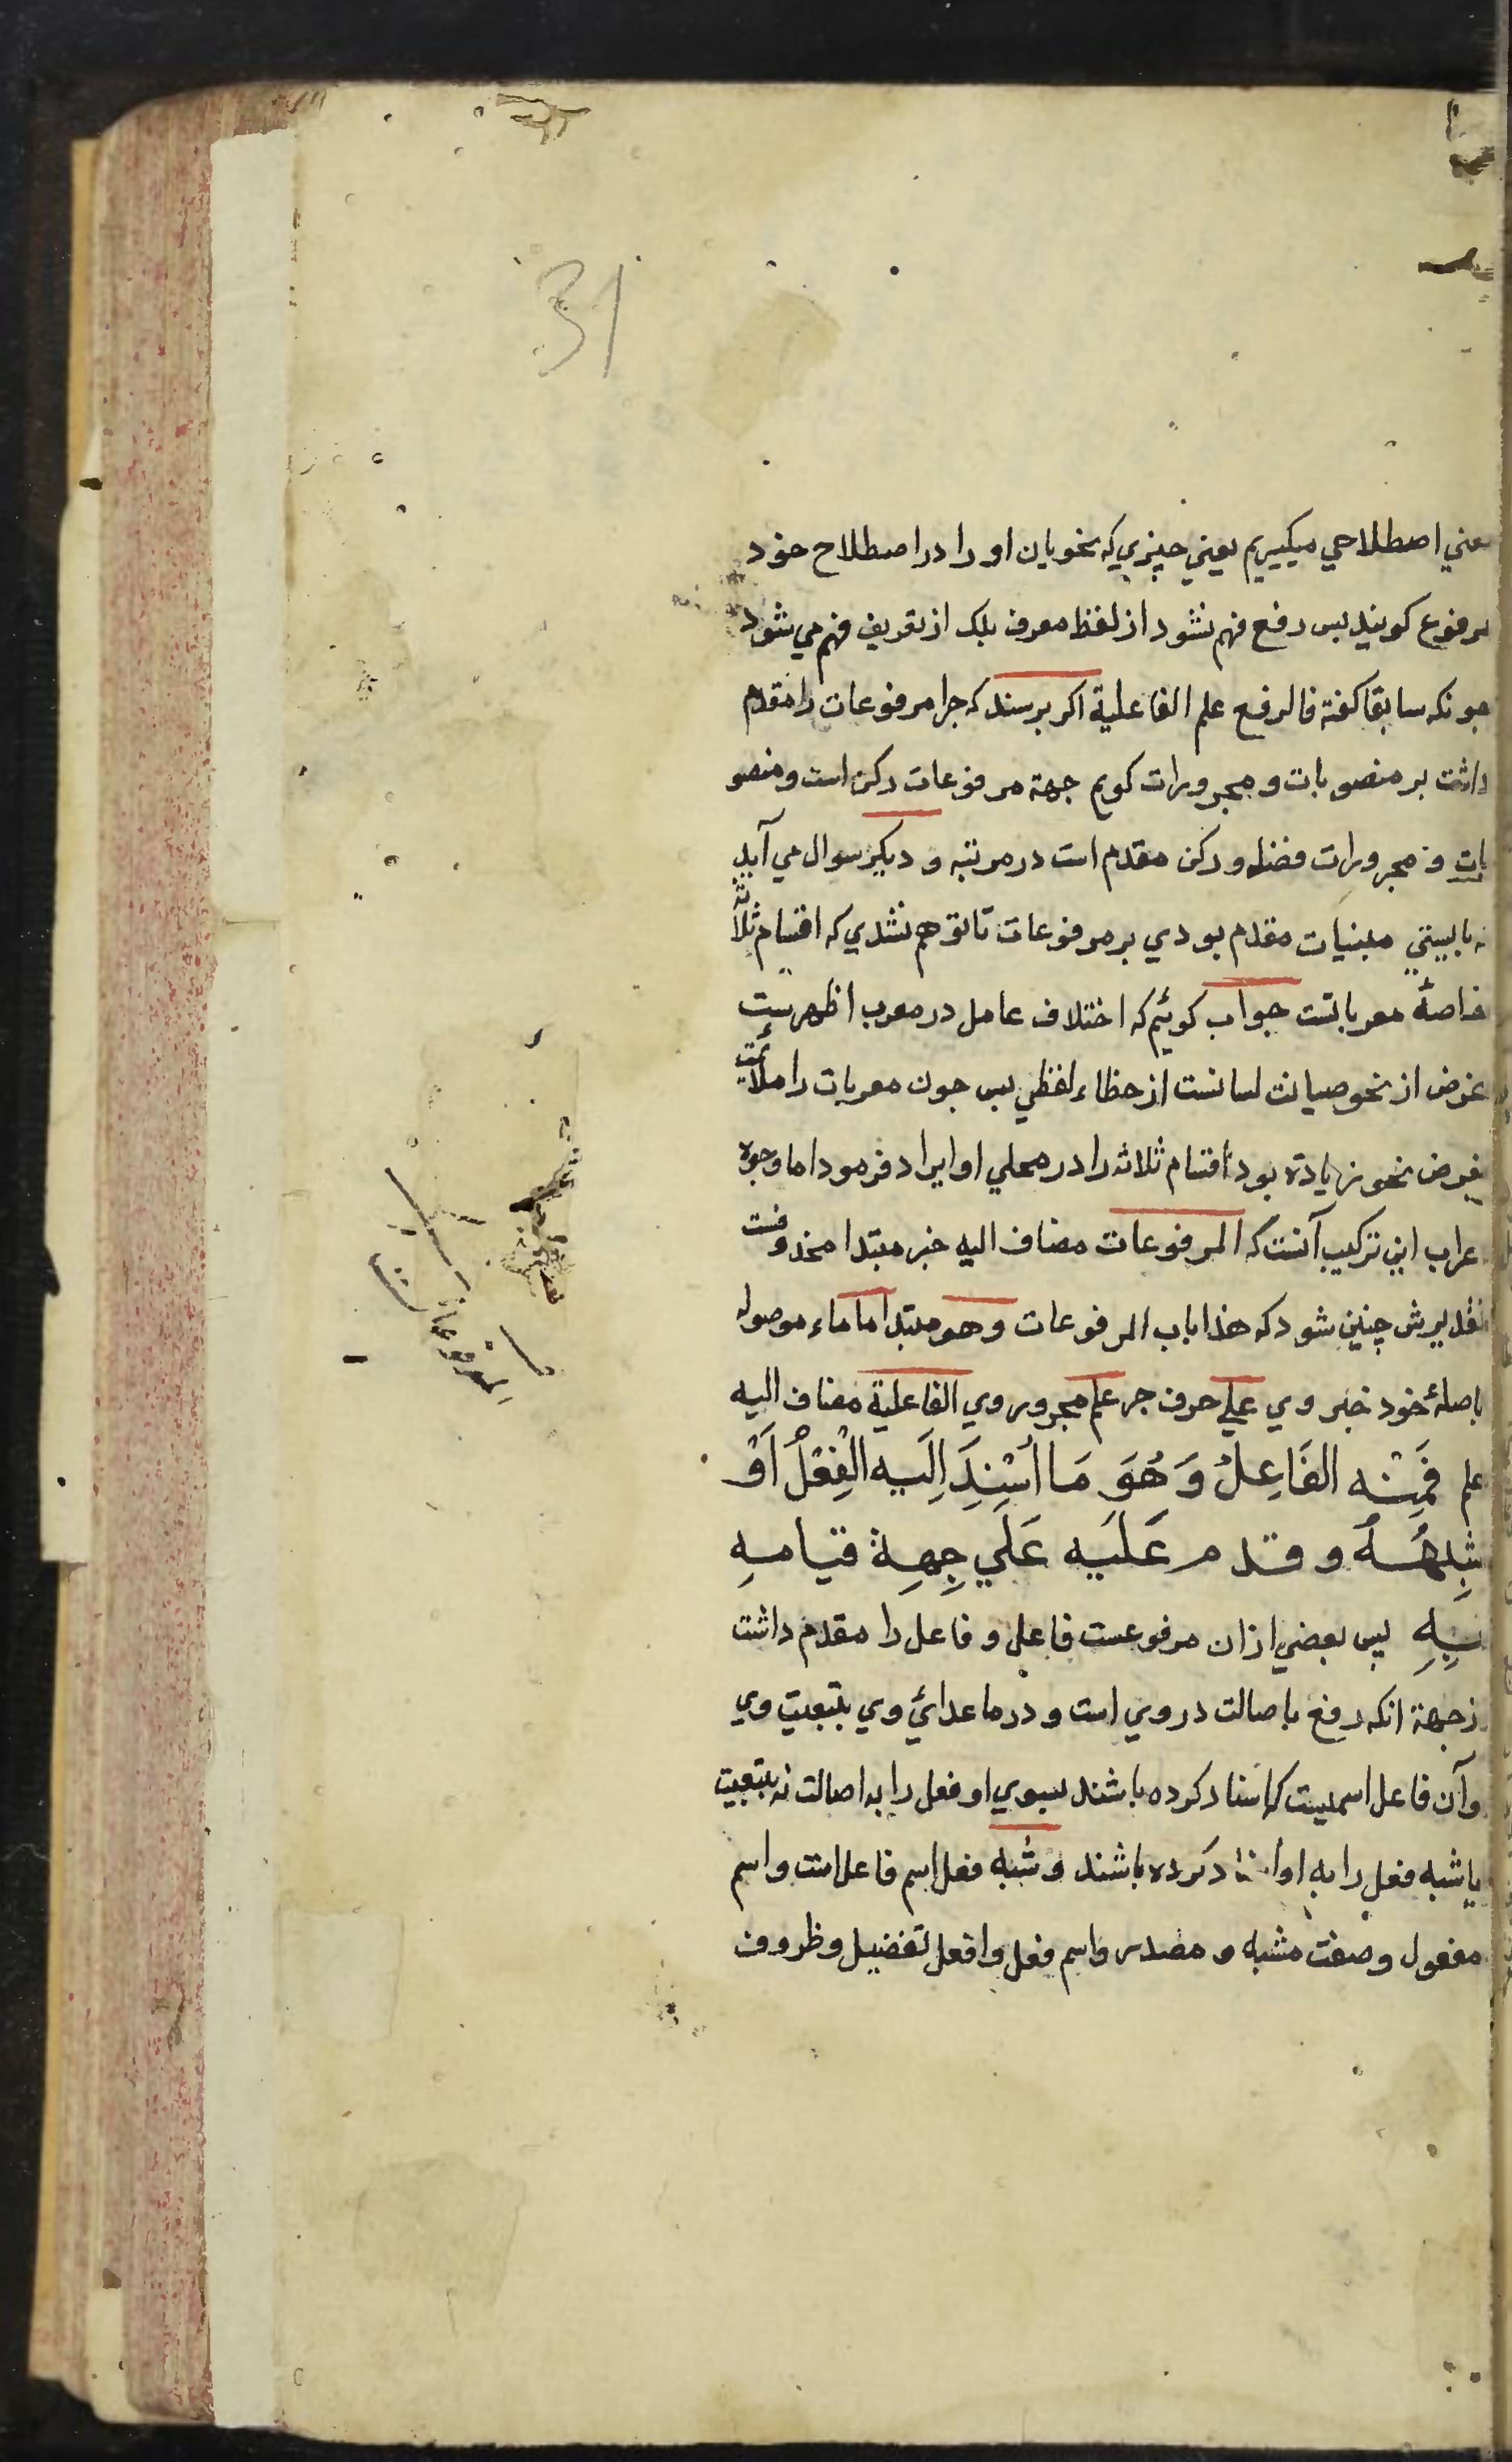 31
معني اصطلاحي ميكيريم يعني چيزي كه نحويان او را در اصطلاح خود
مرفوع كويند پس رفع فهم نشود از لفظ معرف بلك از تعريف فهم مي شود
چونكه سابقا كفته فالرفع علم الفاعلية اكر پرسند كه چرا مرفوعات را مقدم
داشت بر منصوبات و مجرورات كويم جهة مرفوعات ركن است و منصو
بات و مجرورات فضله و ركن مقدم است در مرتبه و ديكر سوال مي آيد
كه بايستي مبنيات مقدم بودي بر مرفوعات تا توهم نشدي كه اقسام ثلاثه
خاصهٔ معرباتست جواب كوئيم كه اختلاف عامل در معرب اظهرست
غرض از نحو صيانت لسانست از خطاء لفظي پس چون معربات را ملائمت
بغرض نحو زيادة بود اقسام ثلاثه را در محلي او ايراد فرمود اما وجوه
عراب اين تركيب آنست كه المرفوعات مضاف اليه خبر مبتدا محذوفست
تقديرش چنين شود كه هذا باب المرفوعات وهو مبتدا ما ماء موصوله
باصلهٔ خود خبر وي علي حرف جر علم مجرور وي الفاعلية مضاف اليه
علم فَمِنْه الفَاعِلُ وَهُوَ مَا اُسْنِدَ اِلَيه الْفِعْلُ اَوْ
شِبْهُهُ و قدم عَلَيه عَلَي جِهِة قيامهِ
بِهِ پس بعضي از ان مرفوعست فاعل و فاعل را مقدم داشت
از جهة انكه رفع باصالت در وي است و در ما عدائي وي بتبعيت وي
و آن فاعل اسميست كه اسناد كرده باشند بسوي او فعل را به اصالت نه بتبعيت
يا شبه فعل را به او اسناد كرده باشند و شبه فعل اسم فاعل است و اسم
مفعول و صفت مشبه و مصدر و اسم فعل و افعل تفضيل و ظروف